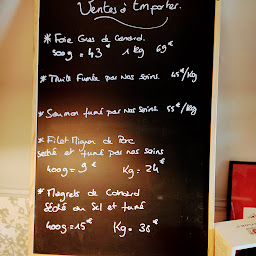 Ventes à Emporter.
* Foie Gras de Canard.
500g = 43€ 1 Kg 69€
* Truite Fumée par nos soins 45€/Kg
* Saumon fumé par nos soins 55€/Kg
* Filet Mignon de Porc
Séché et fumé par nos soins
400g = 9€ Kg = 24€
* Magrets de Canard
Séché au Sel et fumé
400g = 15€ Kg = 38€